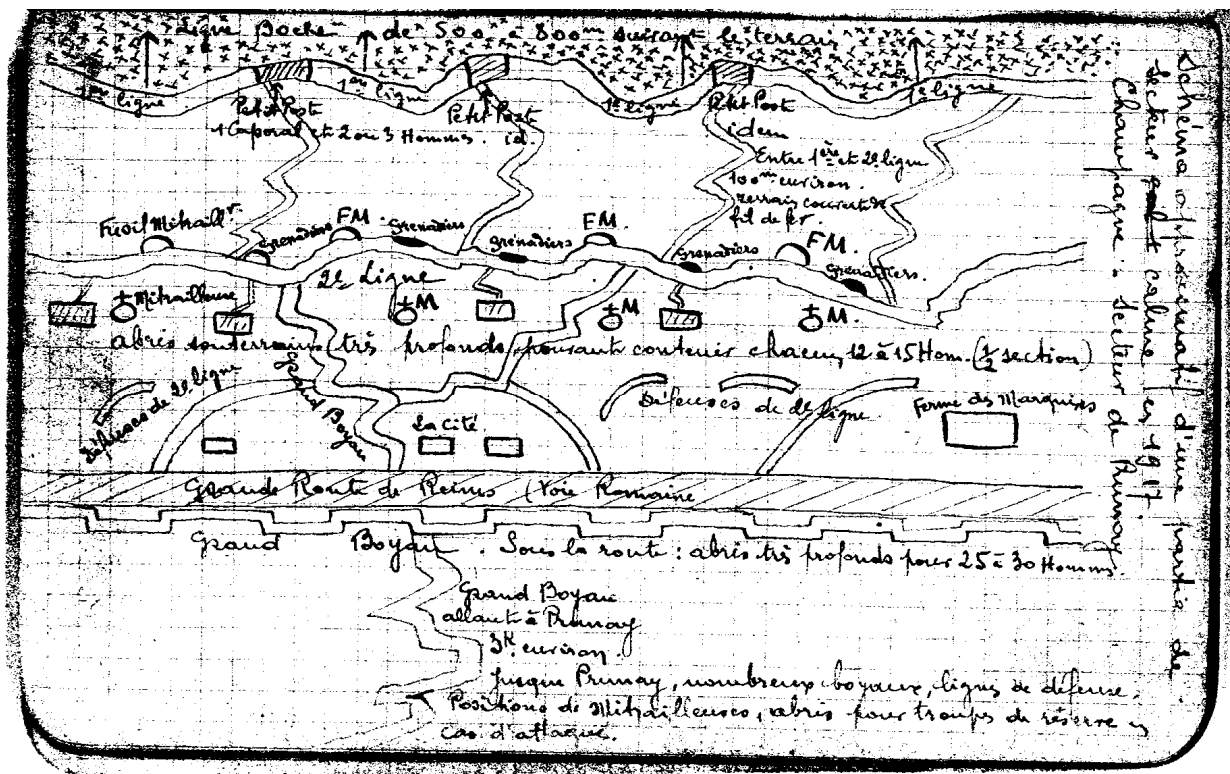 Ligne Boche de 500 à 800m suivant le terrain
1ère ligne
1ère ligne
1e ligne
1e ligne
Petit Poste
1 Caporal et 2 ou 3 Hommes.
Petit Poste
id.
Petit Poste
idem
Entre 1ère et 2e ligne
100m environ.
terrain couvert de
fil de fer.
Fusil Mitraillr.
Grenadiers
FM.
Grenadiers
Grenadiers
FM.
Grenadiers
FM.
Grenadiers.
2e Ligne
Mitrailleuse
M
M
M.
abris souterrains très profonds pouvant contenir chacun 12 à 15 Hom. (1/2 section)
Défenses de 2e ligne
Grand Boyau
La Cité
Défenses de 2e ligne
Ferme des Marquises
Grande Route de Reims (Voie Romaine
Grand Boyau. Sous la route: abris très profonds pour 25 à 30 Hommes.
Grand Boyau
allant à Prunay
3K environ.
Jusque Prunay, nombreux boyaux, lignes de défense.
Positions de Mitrailleuses, abris pour troupes de réserve en
cas d'attaque.
Schéma approximatif d'une partie de
secteur calme en 1917.
Champagne - secteur de Prunay